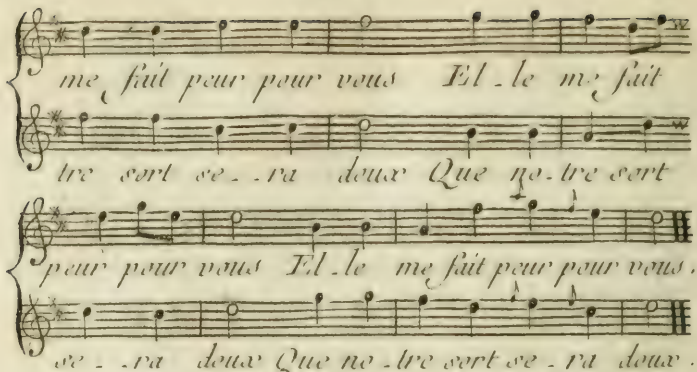 me fait peur pour vous El - le me fait
tre sort se - - ra doux Que no - tre sort
peur pour vous El - le me fait peur pour vous .
se - - ra doux Que no - tre sort se - ra doux .